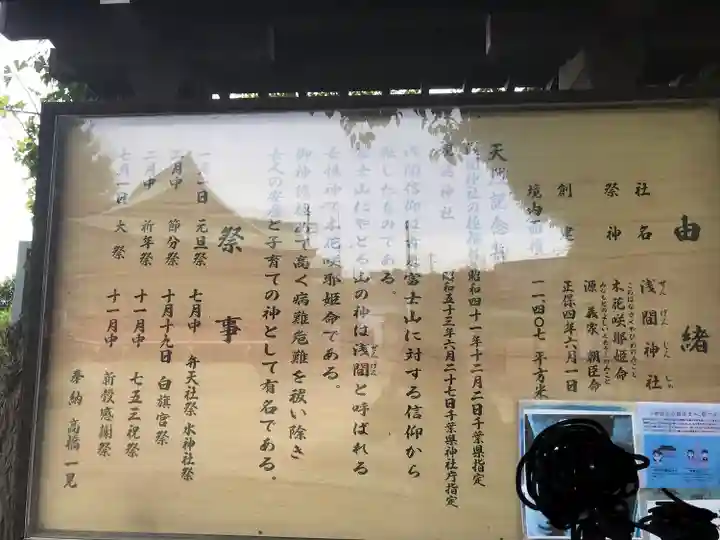 由緒
社名 浅間神社
せんげんじんじゃ
祭神 木花咲耶姫命
このはなさくやひめのみこと
源義家朝臣命
みなもとのよしいえあそんのみこと
創建 正保四年六月一日
境内面積 一二四〇七平方米
天然記念
昭和四十一年十二月二日千葉県指定
神社 昭和五十三年六月二十七日千葉県神社庁指定
浅間信仰は 富士山に対する信仰から
したものである。
富士山にやどる山の神は浅間と呼ばれる
せんげん
女性神で木花咲耶姫命である。
御神徳極めて高く病難危難を祓い除き
女人の安産と子育ての神として有名である。
祭事
一月一日 元旦祭
二月中 節分祭
二月中 祈年祭
七月一日 大祭
七月中 弁天社祭 水神社祭
十月十九日 白旗宮祭
十一月中 七五三祝祭
十一月中 新穀感謝祭
奉納 高橋一見